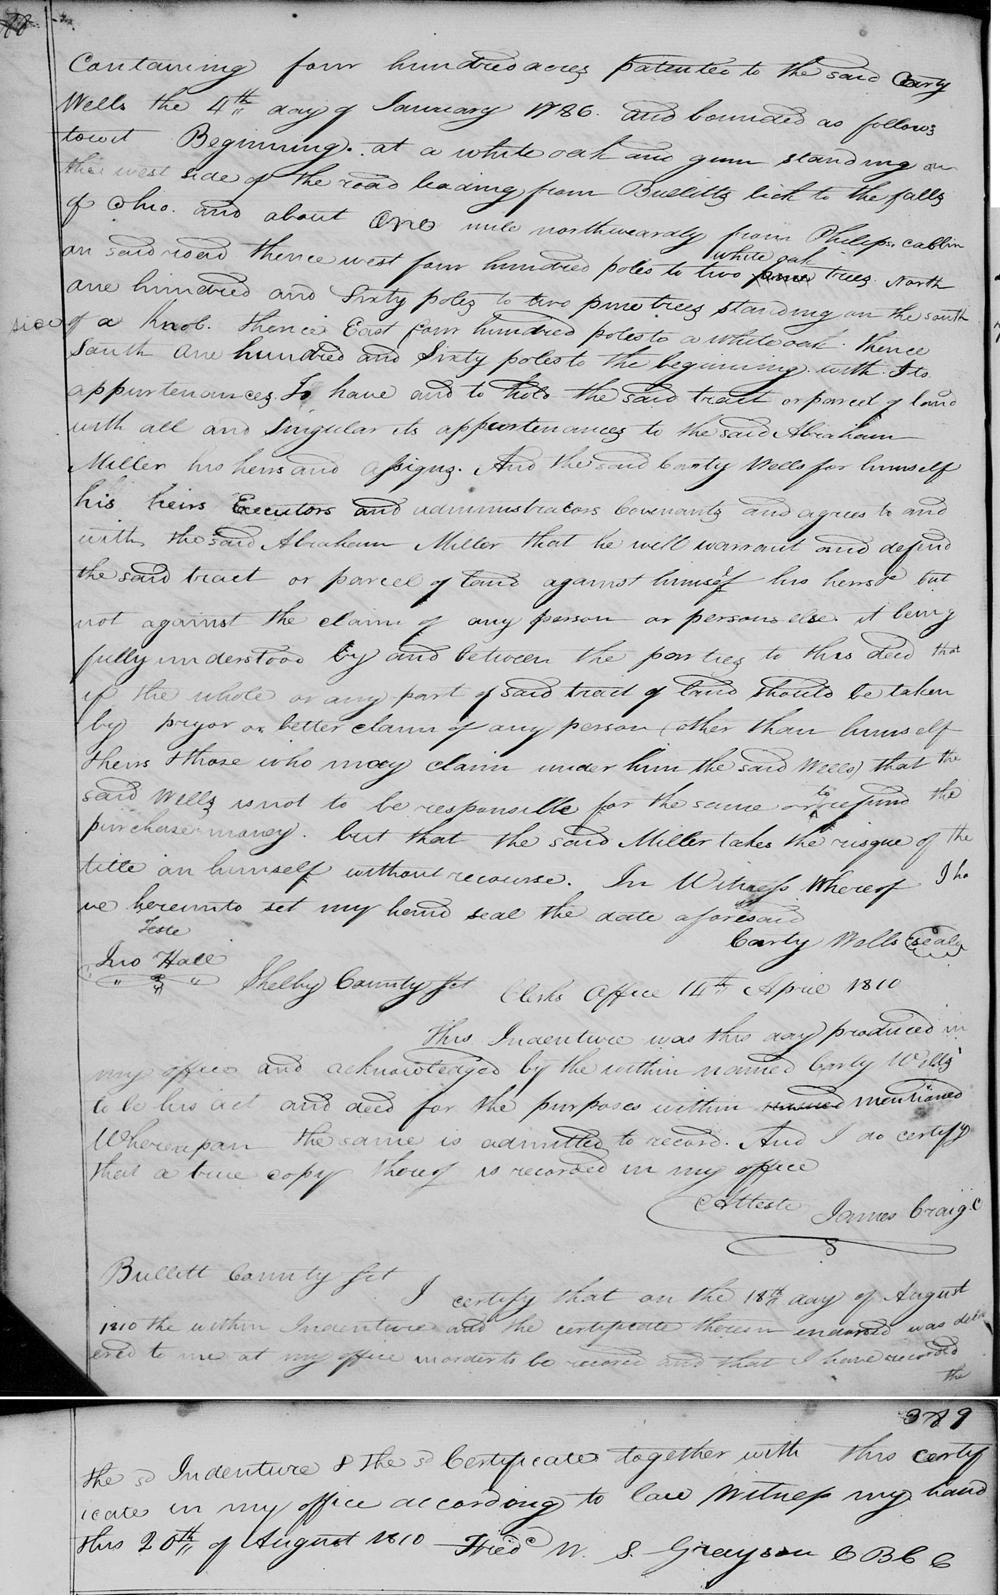 Containing four hundred acres patented to the said Carty
Wells the 4th day of January 1786. and bounded as follows
towit Beginning. at a white oak and gum standing on
the west side of the road leading from Bullitts lick to the falls
of Ohio. and about One mile northwardly from Philips cabbin
on said road thence west four hundred poles to two pine trees North
white oak
one hundred and Sixty poles to two pine trees standing on the south
side of a knob. thence East four hundred poles to a white oak. thence
South One hundred and Sixty poles to the beginning. with Its
appurtenances To have and to hold the said tract or parcel of land
with all and Singular its appurtenances to the said Abraham
Miller his heirs and assigns. And the said Carty Wells for himself
his heirs Executors and administrators Covenants and agrees to and
with the said Abraham Miller that he will warrant and defend
the said tract or parcel of land against himself his heirs &c but
not against the claim of any person or persons else it being
fully understood by and between the parties to this deed that
if the whole or any part of said tract of land should be taken
by pryor or better claim of any person (other than himself
heirs & those who may claim under him the said Wells) that the
said Wells is not to be responsible for the same or to refund the
purchase money. but that the said Miller takes the risque of the
title on himself without recourse. In Witness Whereof I ha
ve hereunto set my hand seal the date aforesaid
Teste
Carty Wells seal
Jno Hall
Shelby County Sct Clerks Office 14th April 1810
This Indenture was this day produced in
my office and acknowledged by the within named Carty Wells
to be his act and deed for the purposes within named mentioned
Whereupon the same is admitted to record. And I do certify
that a true copy thereof is recorded in my office
Atteste James Craig C
Bullitt County Sct I certify that on the 18th day of August
1810 the within Indenture and the certificate thereon endorsed was deliv
ered to me at my office in order to be record and that I have recorded
the
389
the sd Indenture & the sd Certificate together with this certif
icate in my office according to law Witness my hand
this 20th of August 1810 Fredc W. S. Grayson C B C C